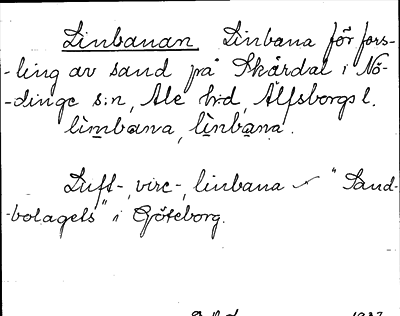 Linbanan Linbana för fors-
-ling av sand på Skårdal i Nö-
-dinge s:n, Ale h:d, Älfsborgs l.
linbana, linbana.
Luft-, vire-, linbana "Sand-
-bolagets" i Göteborg.
1937